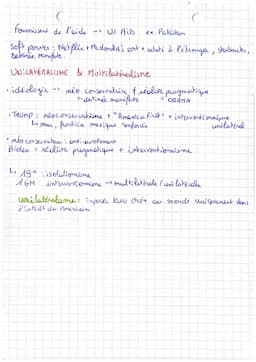 Fournissent de l'aide -> US AID ex Pakistan
Soft power : Netflix + McDonald's sont + aidés à l'étranger, starbucks,
destinée manifeste.
UNILATÉRALISME & Multilatéralisme
• idéologie -> néo conservatrice ≠ réaliste pragmatique
= destinée manifeste = OBAMA
• TRUMP : néoconservatisme + "America first" + interventionnisme
unilatéral
↳ mur, frontière mexique renforcée
• néoconservateur : anti-
Biden = réaliste pragmatique + interventionnisme
↳ 19e : isolationisme
1GM interventionnisme -> multilatérale / unilatérale
unilatéralisme : impose leurs choix au monde uniquement dans
l'intérêt des Américains